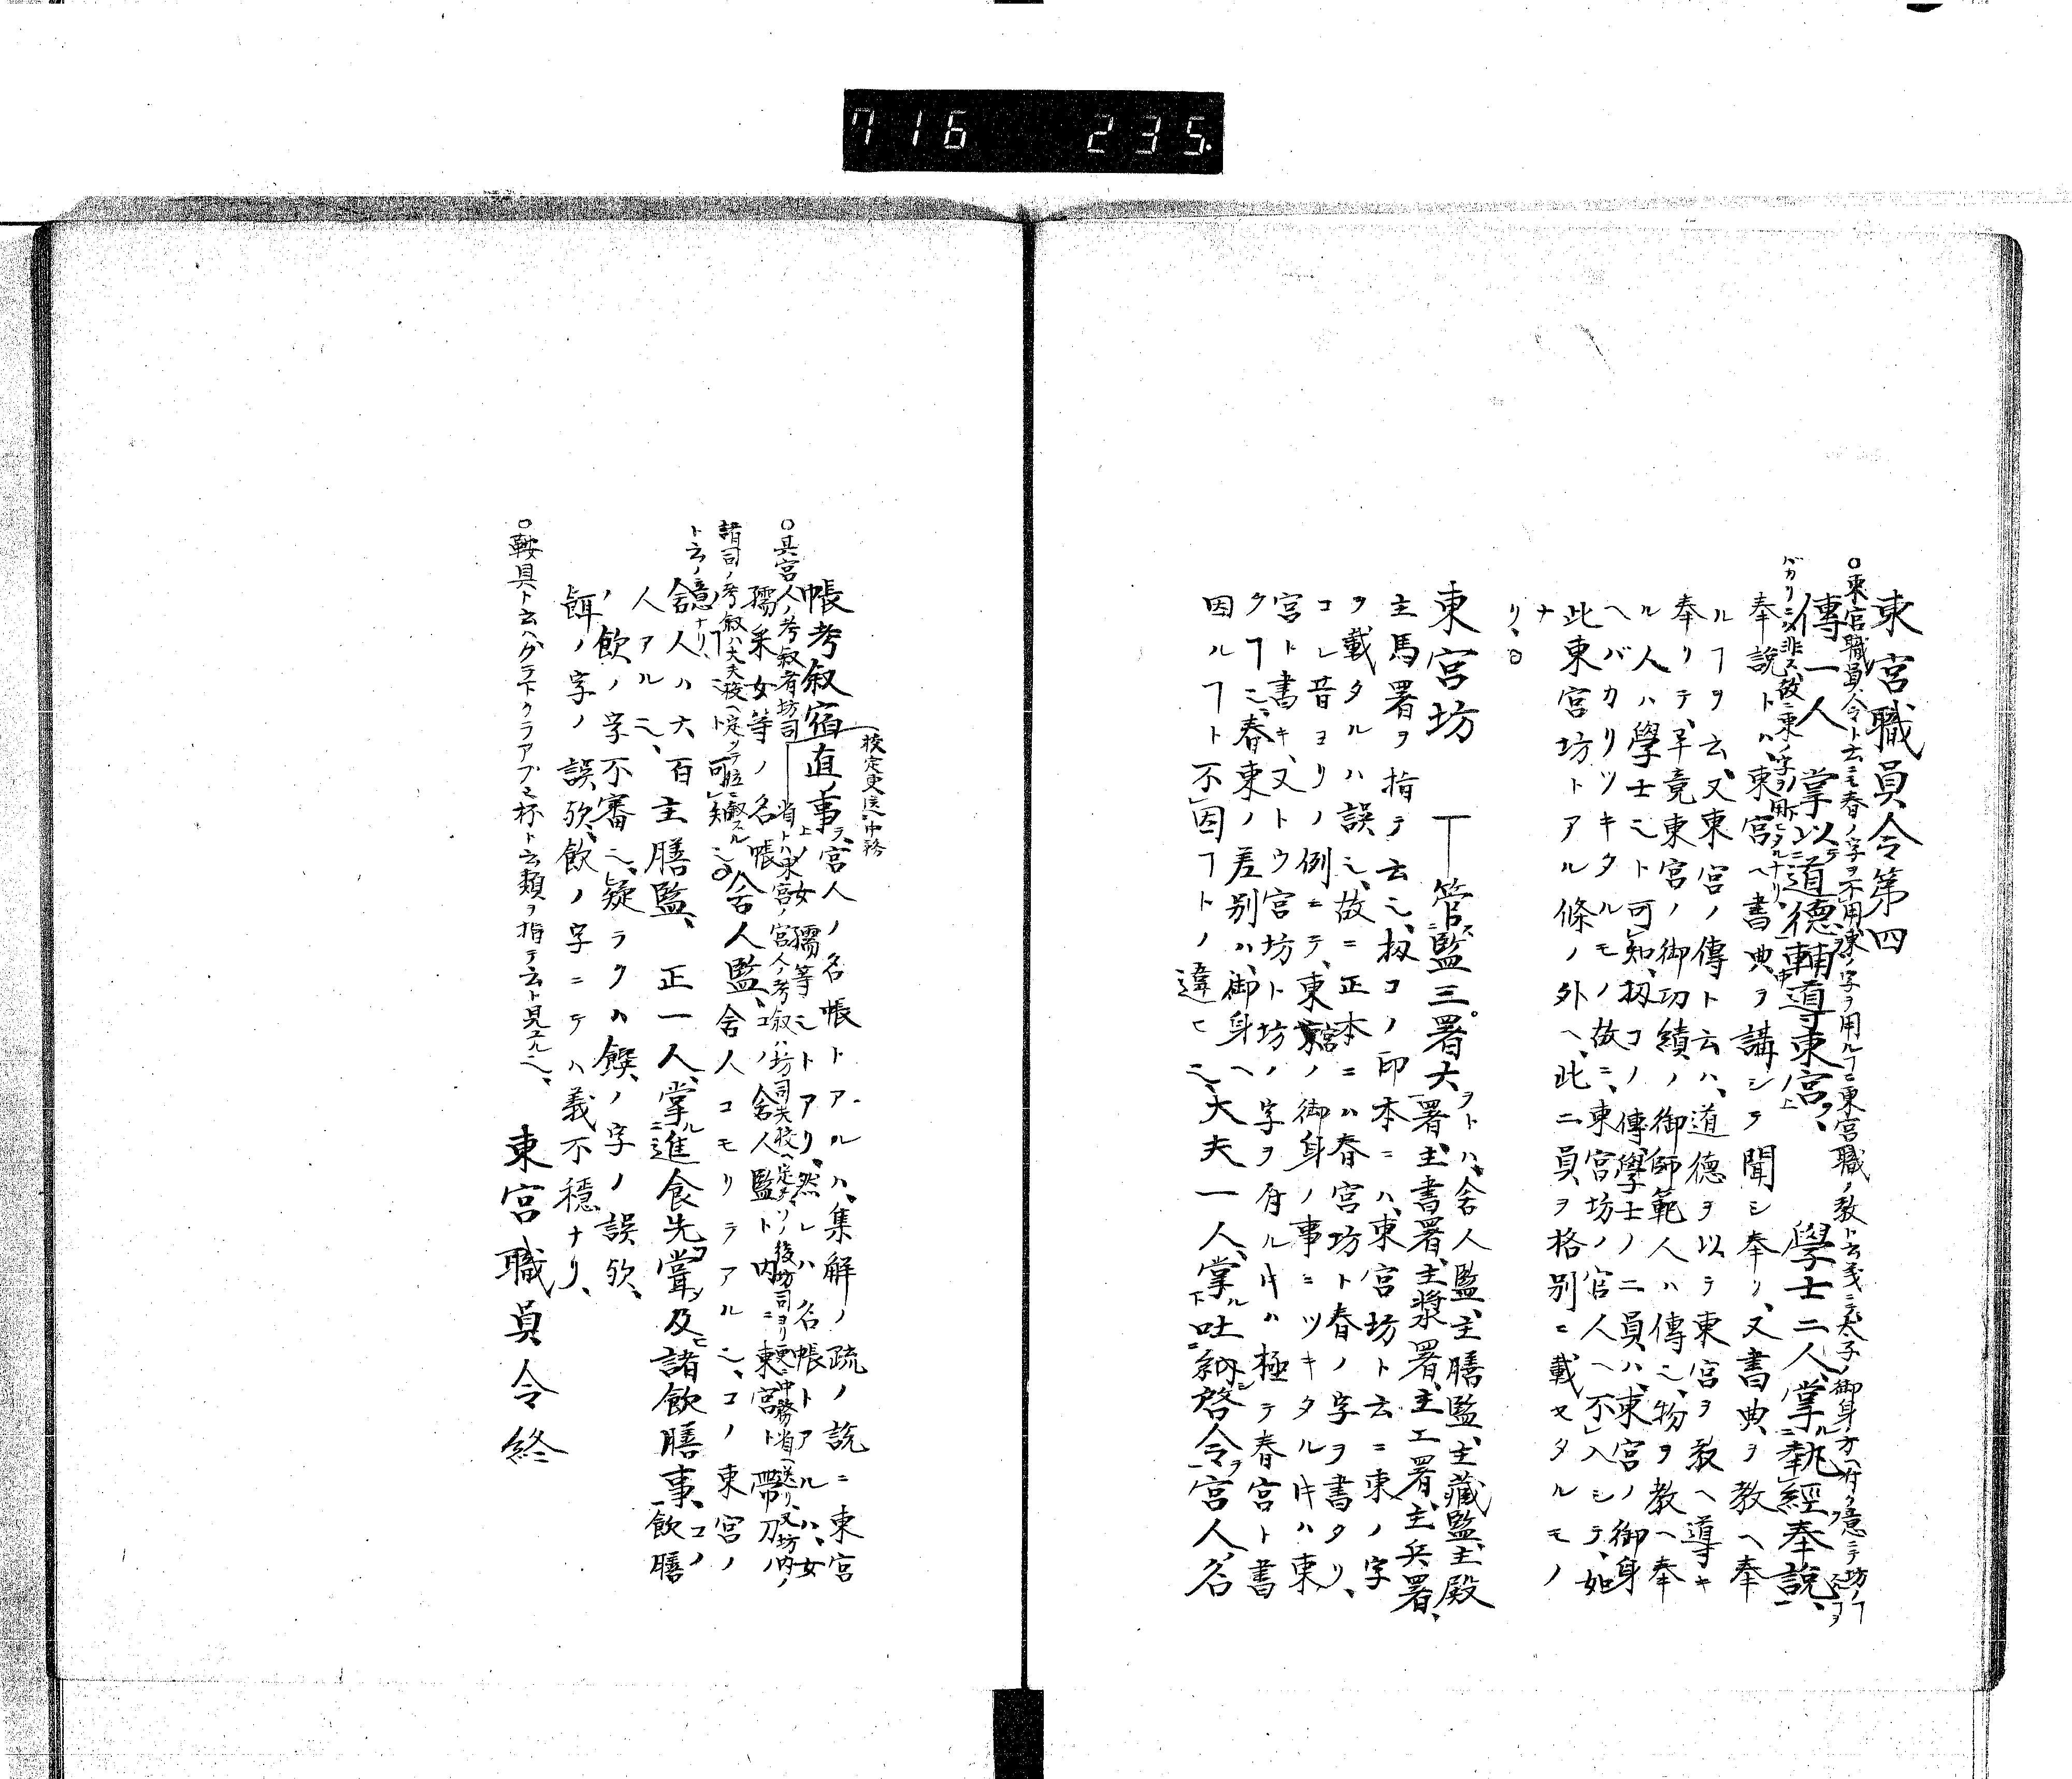 716 235.
東宮職員令第四
○東宮職員令ト云ニモ春ノ字ヲ不用東ノ字ヲ用ルヿニ東宮職ノ教ト云義ニテ太子ノ御身ノ方ヘ付ク意ニテ坊ノヿ
バカリニ非ス故ニ東ノ字ヲ用ヒタルナリ、
傳一人 掌以道德輔導東宮、 學士二人、掌執經奉說、
奉說トハ東宮ヘ書典ヲ講シテ聞シ奉リ、又書典ヲ教ヘ奉
ルヿヲ云、又東宮ノ傳ト云ハ、道德ヲ以テ東宮ヲ教ヘ導キ
奉リテ、早竟東宮ノ御功績ノ御師範人ハ傳ニ、物ヲ教ヘ奉
ル人ハ學士ニト可知、扨コノ傳學士ノ二員ハ、東宮ノ御身
ヘバカリツキタルモノ故ニ、東宮坊ノ官人ヘ不入シテ、如
此東宮坊トアル條ノ外ヘ、此二員ヲ格別ニ載セタルモノ
ナリ、○
東宮坊 管監三署六 署六トハ、舍人監、主膳監、主藏監、主殿
署、主書署、主漿署、主工署、主兵署、
主馬署ヲ指テ云ニ、扨コノ印本ニハ、東宮坊ト云ニ東ノ字
ヲ載タルハ誤ニ、故ニ正本ニハ春宮坊ト春ノ字ヲ書タリ、
コレ昔ヨリノ例ニテ、東宮ノ御身ノ事ニツキタル片ハ東
宮ト書キ、又トウ宮坊ト坊ノ字ヲ付ル片ハ極テ春宮ト書
クヿニ、春東ノ差別ハ、御身ヘ
因ルヿト不因ヿトノ違ヒニ、大夫一人、掌吐納啓令、宮人名
帳考叙宿直事、宮人ノ名帳トアルハ、集解ノ疏ノ說ニ東宮
ノ女孺等ニトアリ、然レハ名帳トアルハ、女
孺ノ采女等ノ名帳
校定更送中務
○其宮人ノ考叙者坊司 省トハ東宮ノ宮人ノ考叙ハ坊司先校ヘ定テ、ソノ後坊司ヨリ更ニ中務省ヘ送リ、又坊内ノ
諸司ノ考叙ハ大夫校ヘ定ツテ位ニ叙スル
ト云ノ意ナリ、
ノヿニト可知ニ○ 舍人監、コノ舍人監ト内ニ東宮ト帶刀ノ
舍人ハ六百 舍人コモリテアルニ、コノ東宮ノ
主膳監、 正一人、掌進食先嘗、及諸飲膳事、コノ飲膳
人アルニ、
ノ飲ノ字不審ニ、疑ラクハ饌ノ字ノ誤歟、
餌ノ字ノ誤歟、飲ノ字ニテハ義不穩ナリ、
○鞍具ト云ヘハグラ下クラアブミ杯ト云類ヲ指テ云ト見エルニ、
東宮職員令終